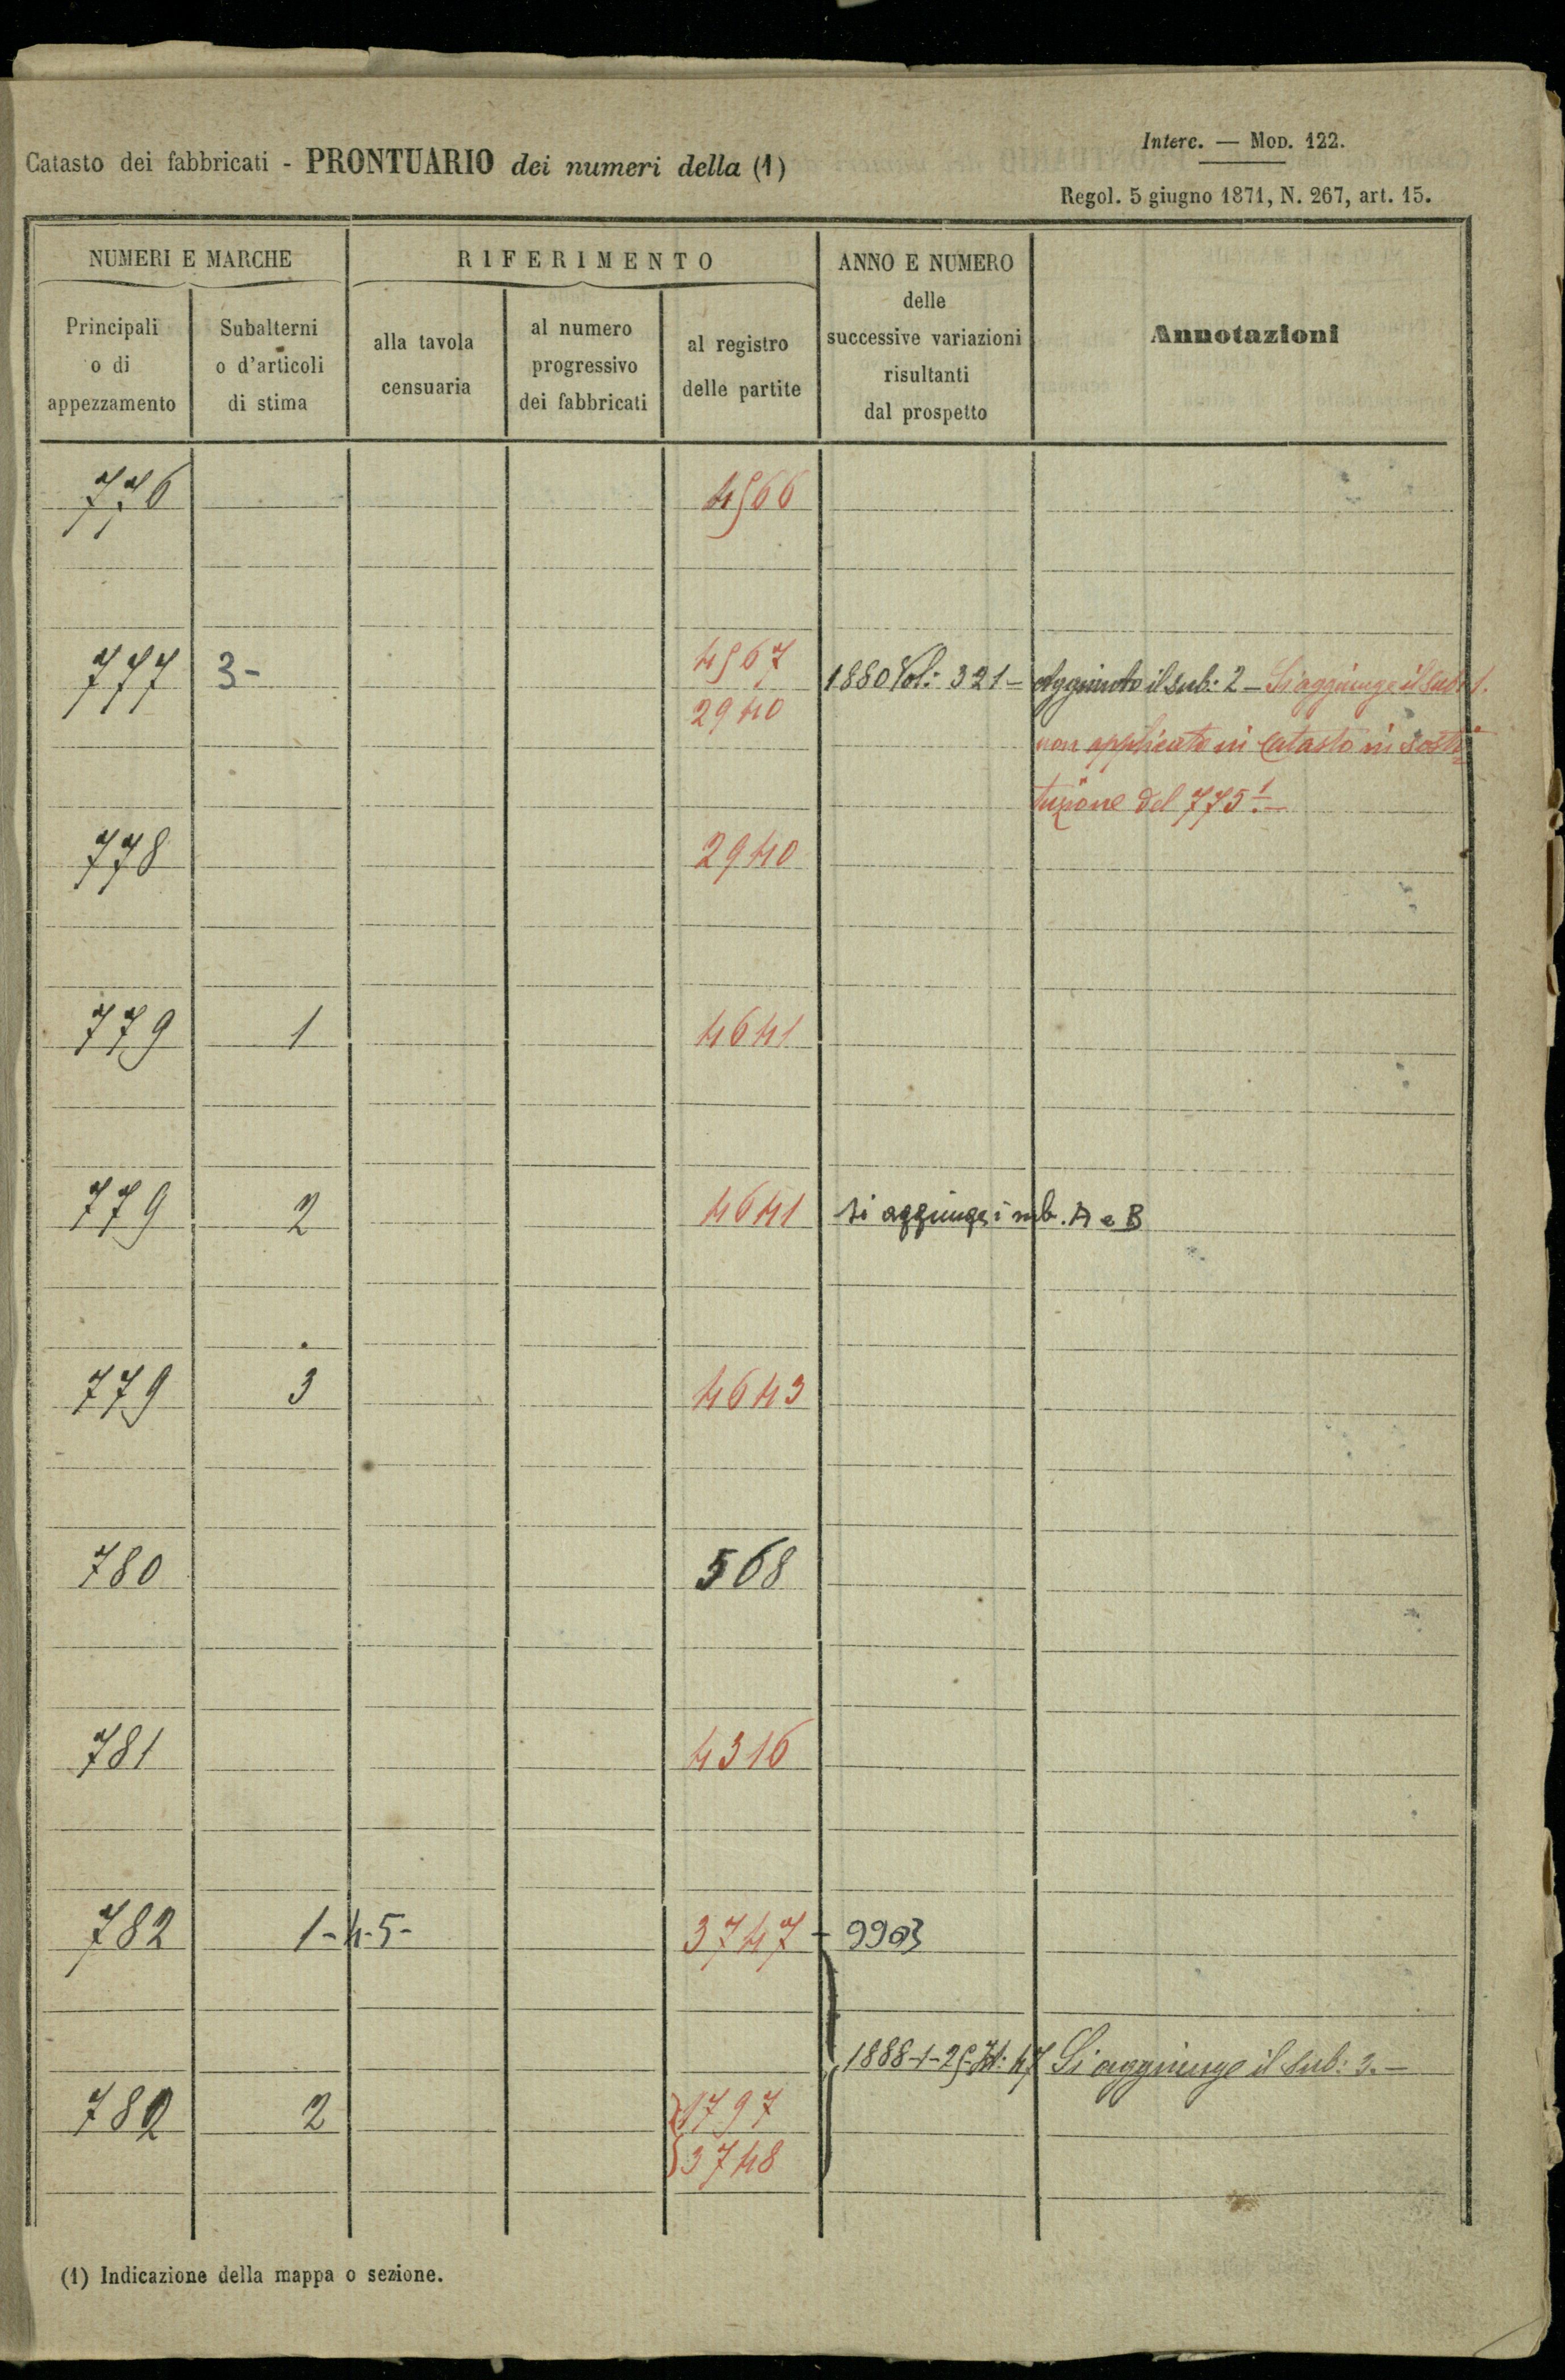 Interc. — Mod. 122.
Catasto dei fabbricati - PRONTUARIO dei numeri della (1)
Regol. 5 giugno 1871, N. 267, art. 15.
NUMERI E MARCHE
RIFERIMENTO
ANNO E NUMERO
delle
successive variazioni
risultanti
dal prospetto
Annotazioni
Principali
o di
appezzamento
Subalterni
o d'articoli
di stima
alla tavola
censuaria
al numero
progressivo
dei fabbricati
al registro
delle partite
776 4566
777 3- 4567 1880 Vol: 321- Aggiunto il sub: 2 - Si aggiunge il sub: 1.
2940
non applicato in Catasto in sosti
tuzione del 775 1/-
778 2940
779 1 4641
779 2 4641 si aggiunge i sub. A e B
779 3 4643
780 568
781 4316
782 1-4-5- 3747 - 9903
1888-1-25- 47 Si aggiunge il sub: 3.-
782 2 1797
3748
(1) Indicazione della mappa o sezione.